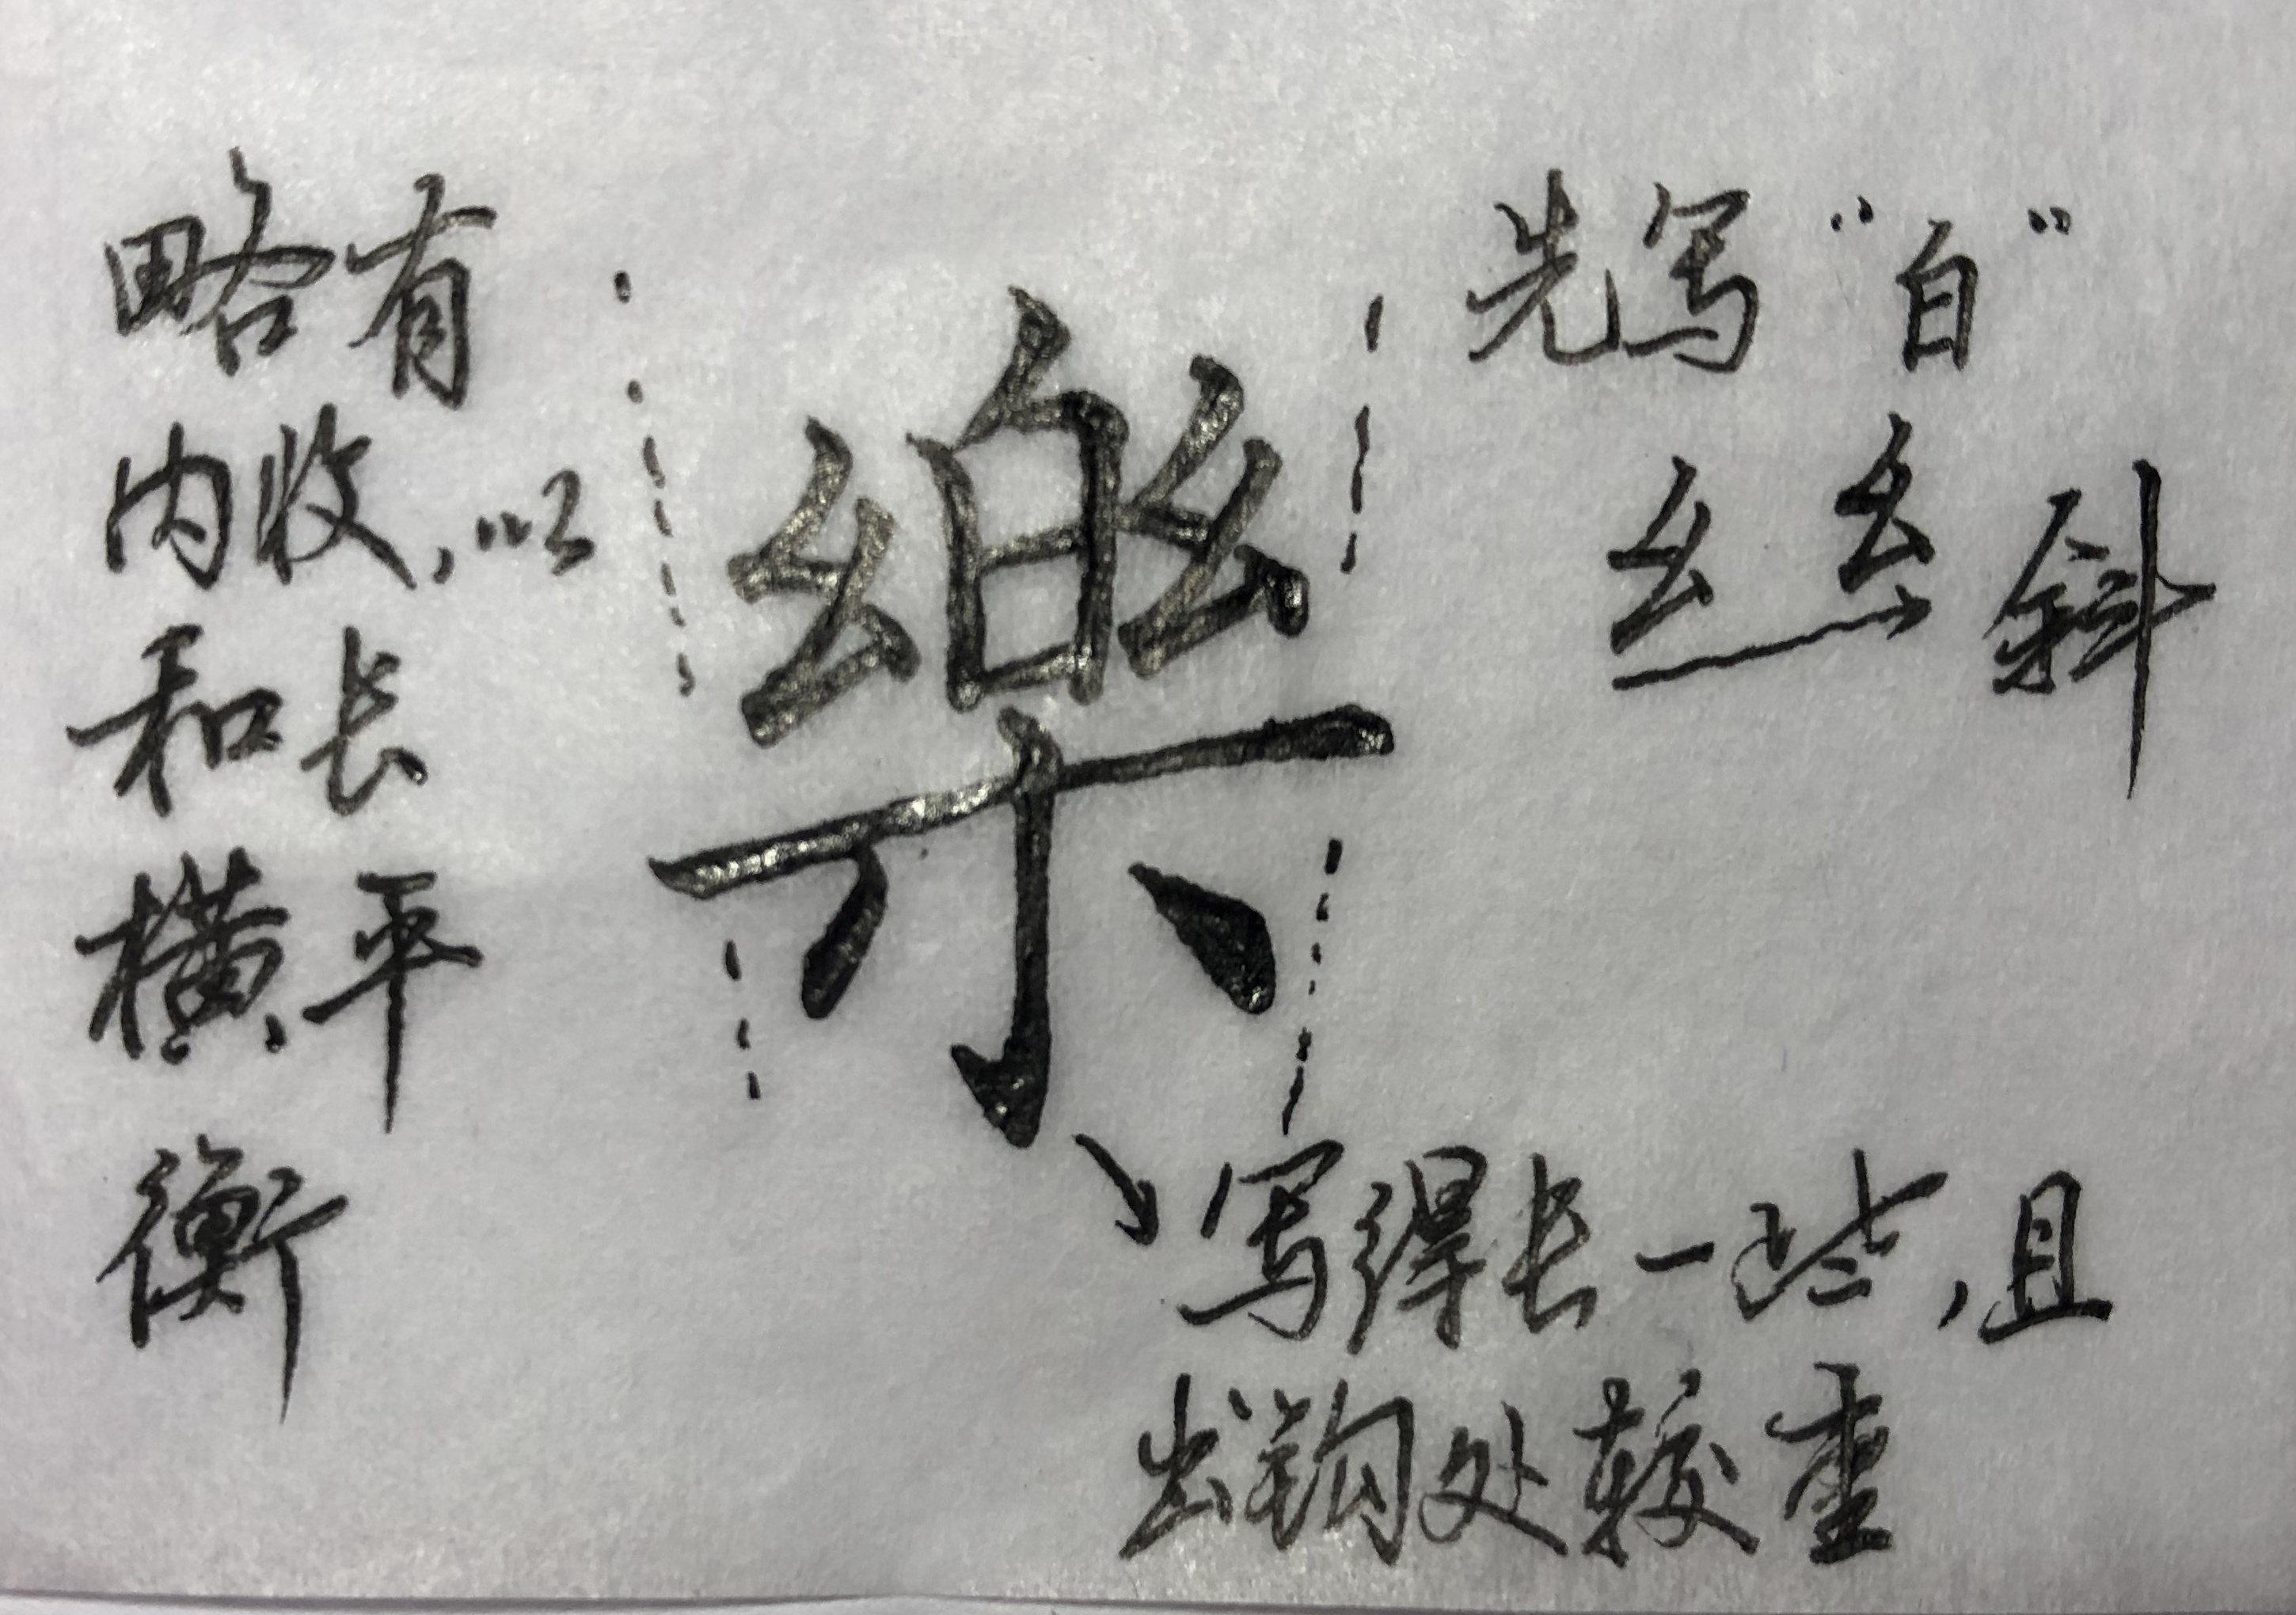 略有
内收，以
和长
横平
衡
樂
先写“白”
幺幺斜
写得长一些，且
出钩处较重